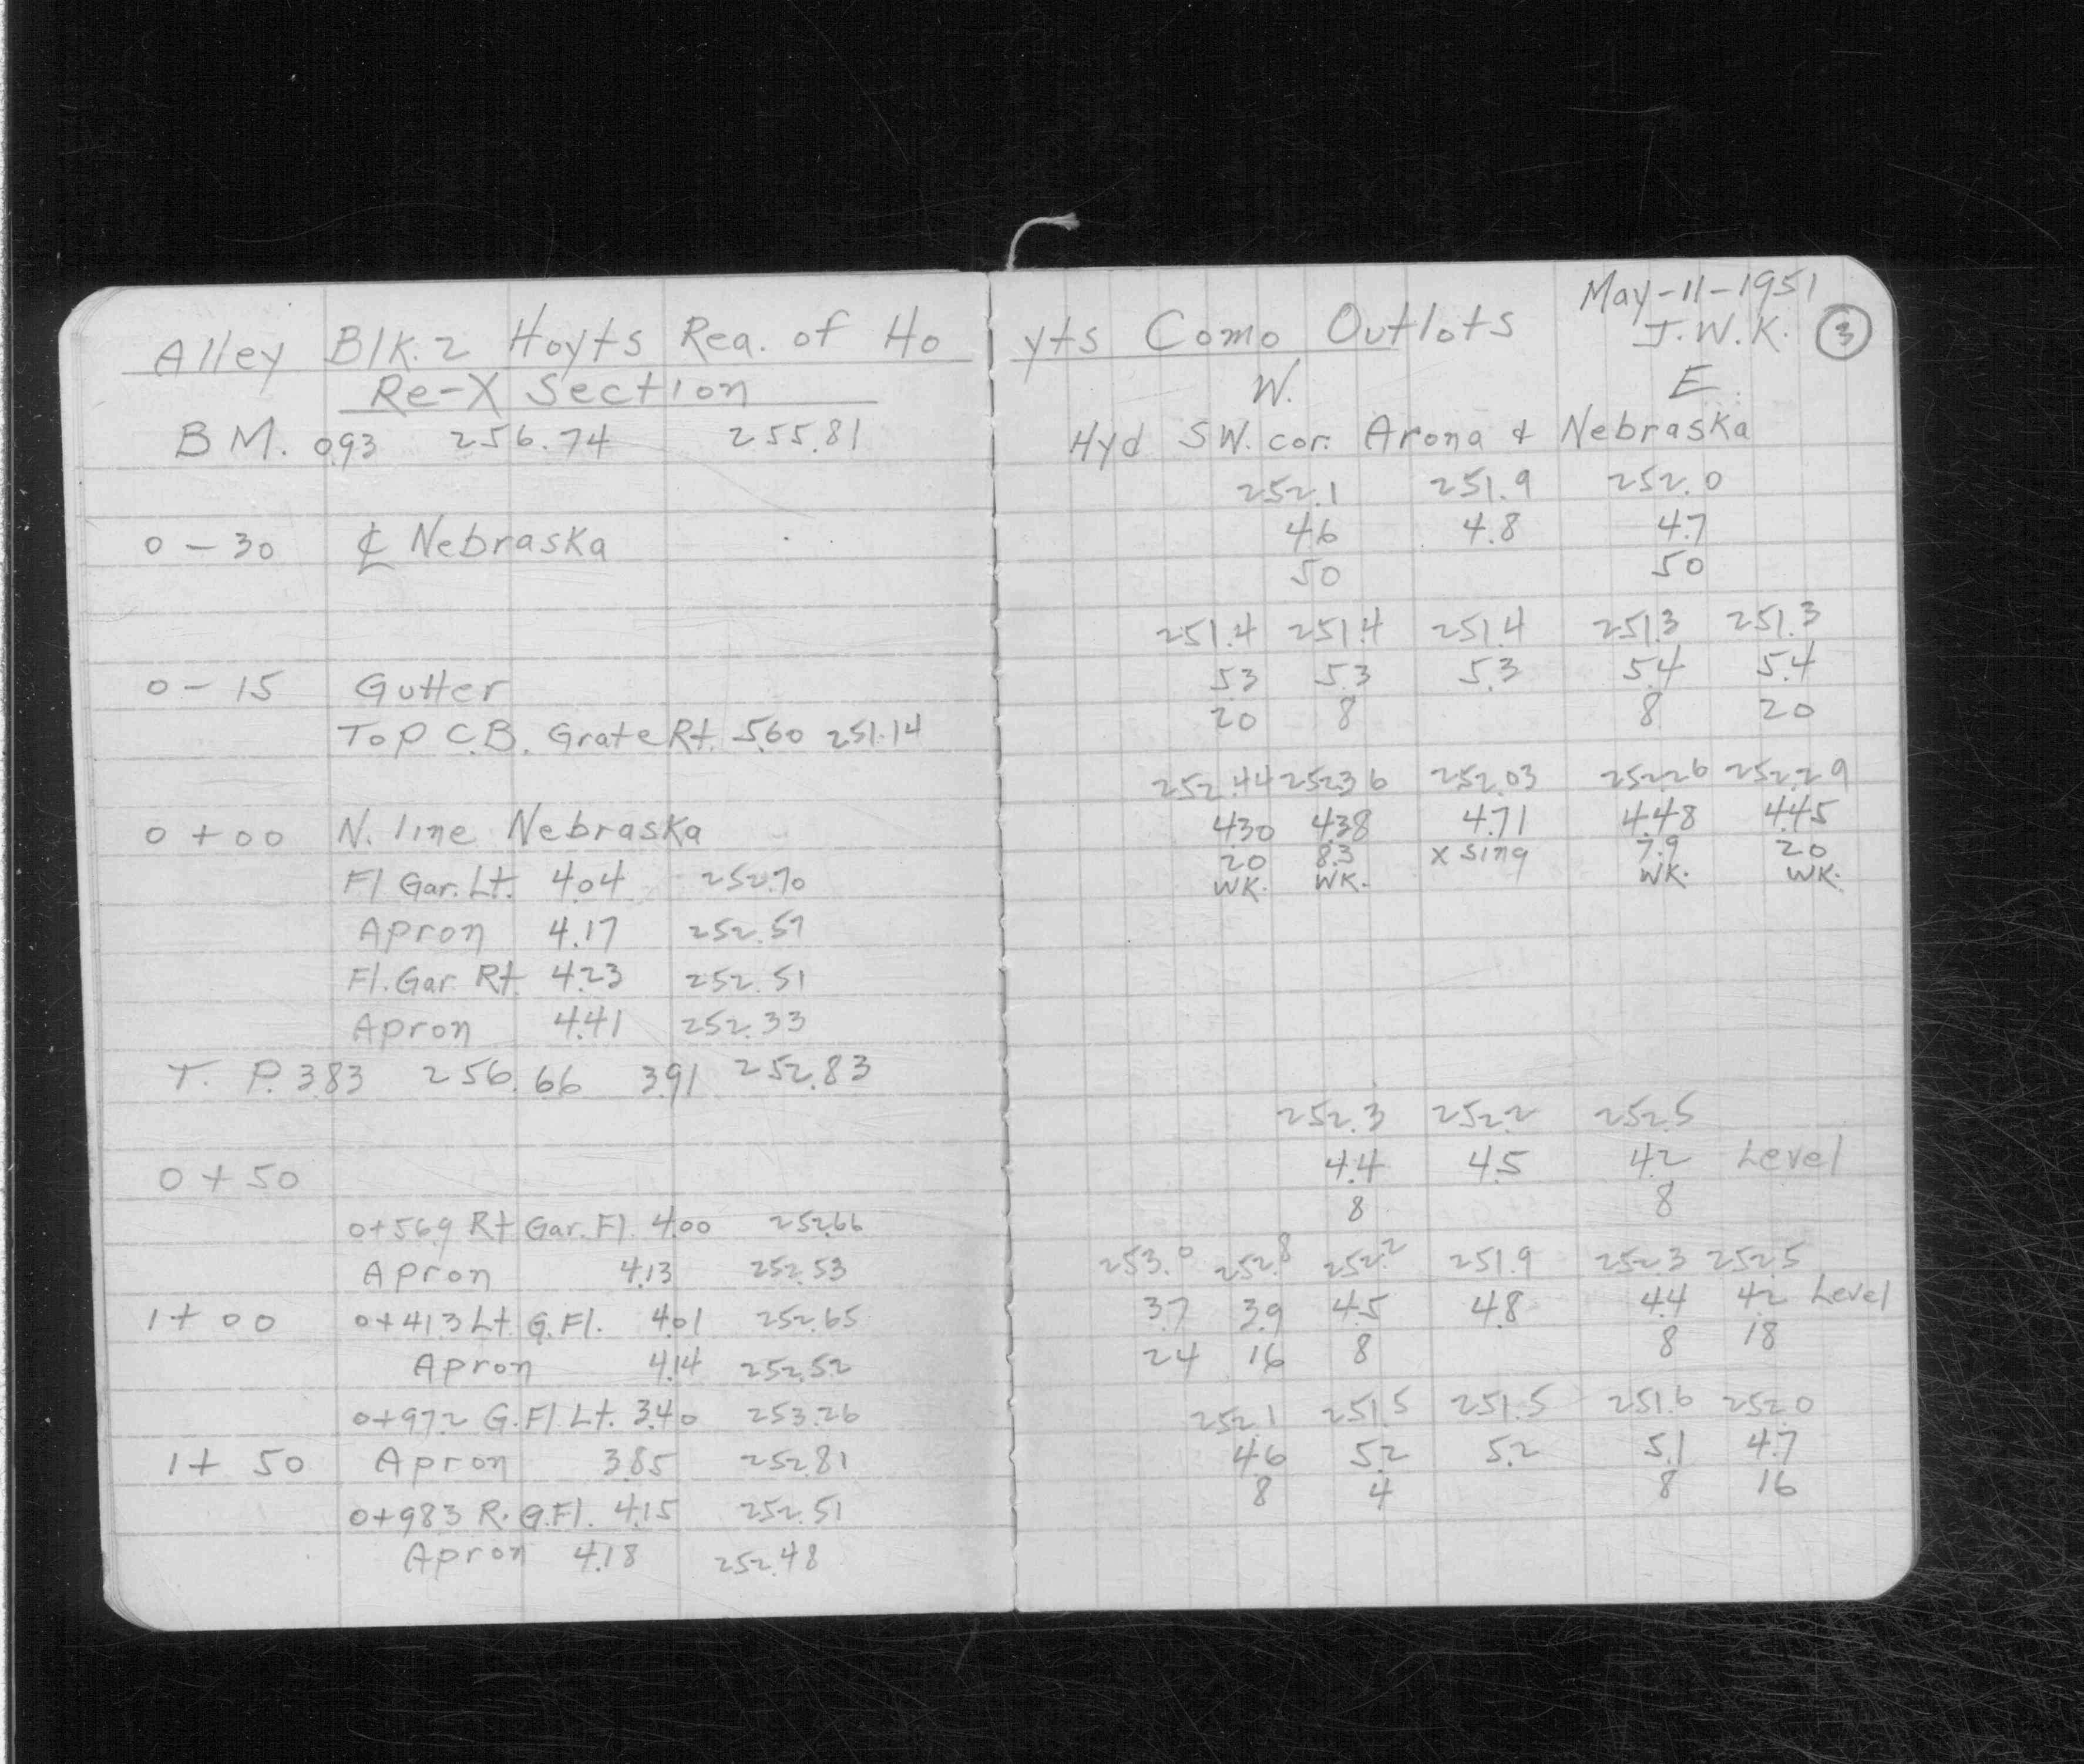 May-11-1951
Alley Blk. 2 Hoyts Rea. of Hoyts Como Outlots J.W.K. 3
Re-X Section W. E.
BM. 0.93 256.74 255.81 Hyd SW. cor. Arona & Nebraska
252.1 251.9 252.0
0-30 ℄ Nebraska 4.6 4.8 4.7
50 50
251.4 251.4 251.4 251.3 251.3
0-15 Gutter 5.3 5.3 5.3 5.4 5.4
Top C.B. Grate Rt. 5.60 251.14 20 8 8 20
252.44 252.36 252.03 252.26 252.29
0+00 N. line Nebraska 4.30 4.38 4.71 4.48 4.45
20 8.3 x sing 7.9 20
Fl Gar. Lt. 4.04 252.70 WK. WK. WK. WK.
Apron 4.17 252.57
Fl. Gar. Rt. 4.23 252.51
Apron 4.41 252.33
T. P. 3.83 256.66 3.91 252.83
252.3 252.2 252.5
0+50 4.4 4.5 4.2 Level
8 8
0+56.9 Rt Gar. Fl. 4.00 252.66
Apron 4.13 252.53 253.0 252.8 252.2 251.9 252.3 252.5
1+00 0+41.3 Lt. G. Fl. 4.01 252.65 3.7 3.9 4.5 4.8 4.4 4.2 Level
Apron 4.14 252.52 24 16 8 8 18
0+97.2 G. Fl Lt. 3.40 253.26 252.1 251.5 251.5 251.6 252.0
1+50 Apron 3.85 252.81 4.6 5.2 5.2 5.1 4.7
8 4 8 16
0+98.3 R. G.Fl. 4.15 252.51
Apron 4.18 252.48